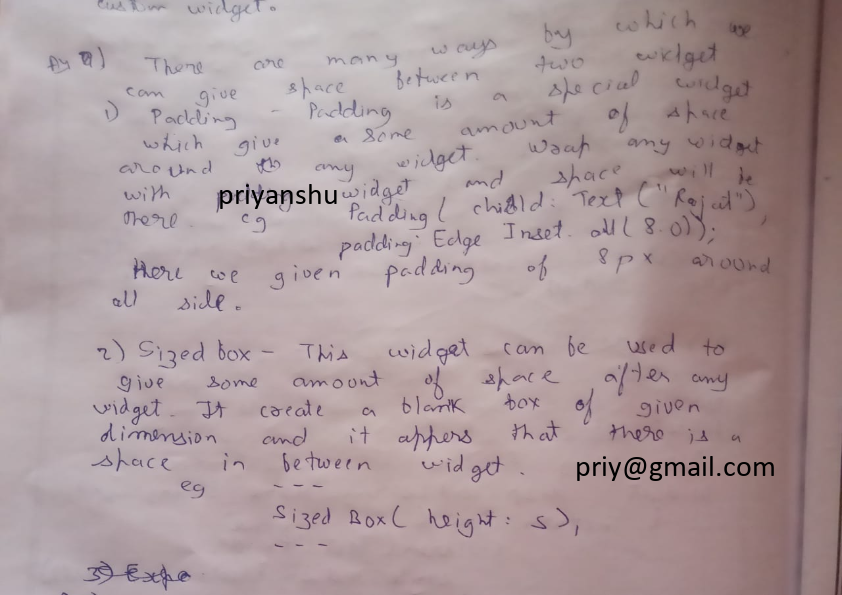 custom widget.
9) There are many ways by which we
can give space between two widget
1) Padding - Padding is a special widget
which give a some amount of space
around any widget. Wrap any widget
with priyanshu widget and space will be
there. eg Padding( child: Text ("Rajat"),
padding: Edge Inset. all( 8.0));
Here we given padding of 8px around
all side.
2) Sized box - This widget can be used to
give some amount of space after any
widget. It create a blank box of given
dimension and it appers that there is a
space in between widget.
priy@gmail.com
eg - - -
Sized Box( height: 5),
- - -
3) Expa